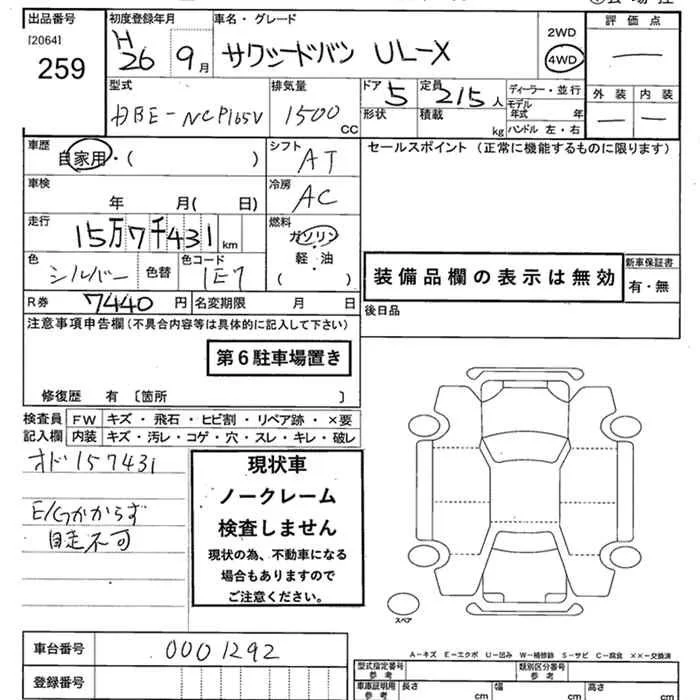 出品番号
[2064]
259
初度登録年月
H
26 9月
車名・グレード
サクシードバン UL-X
2WD
4WD
評価点
—
外装 内装
— —
型式
DBE-NCP165V
排気量
1500
CC
ドア 5
形状
定員 2/5人
積載
kg
ディーラー・並行
モデル
年式 年
ハンドル 左・右
車歴
自家用・( )
シフト
AT
車検
年 月( 日)
冷房
AC
走行
15万7千431
km
燃料
ガソリン
軽・油
( )
色
シルバー
色替
色コード
1E7
R券 7440 円
名変期限 月 日
セールスポイント(正常に機能するものに限ります)
装備品欄の表示は無効
新車保証書
有・無
後日品
注意事項申告欄(不具合内容等は具体的に記入して下さい)
第6駐車場置き
修復歴 有〔箇所 〕
検査員 FW キズ・飛石・ヒビ割・リペア跡・×要
記入欄 内装 キズ・汚レ・コゲ・穴・スレ・キレ・破レ
オド157431
E/Gかからず
自走不可
現状車
ノークレーム
検査しません
現状の為、不動車になる
場合もありますので
ご注意ください。
スペア
A-キズ E-エクボ U-凹み W-補修跡 S-サビ C-腐食 ××-交換済
車台番号 0001292
登録番号
型式指定番号
参考
類別区分番号
参考
車庫証明用
参考
長さ cm
幅 cm
高さ cm